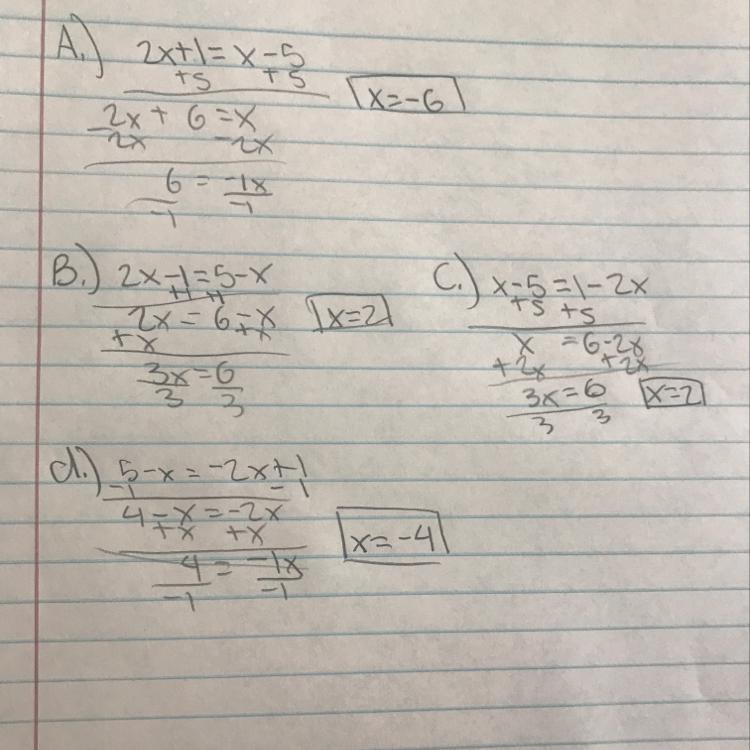 A.) 2x+1=x-5
+5 +5
x=-6
2x + 6 =x
-2x -2x
6 = -1x
-1 -1
B.) 2x-1=5-x
+1 +1
2x = 6-x
x=2
+x +x
3x=6
3 3
C.) x-5=1-2x
+5 +5
x =6-2x
+2x +2x
3x=6
x=2
3 3
d.) 5-x=-2x+1
-1 -1
4-x=-2x
+x +x
x=-4
4 = -1x
-1 -1